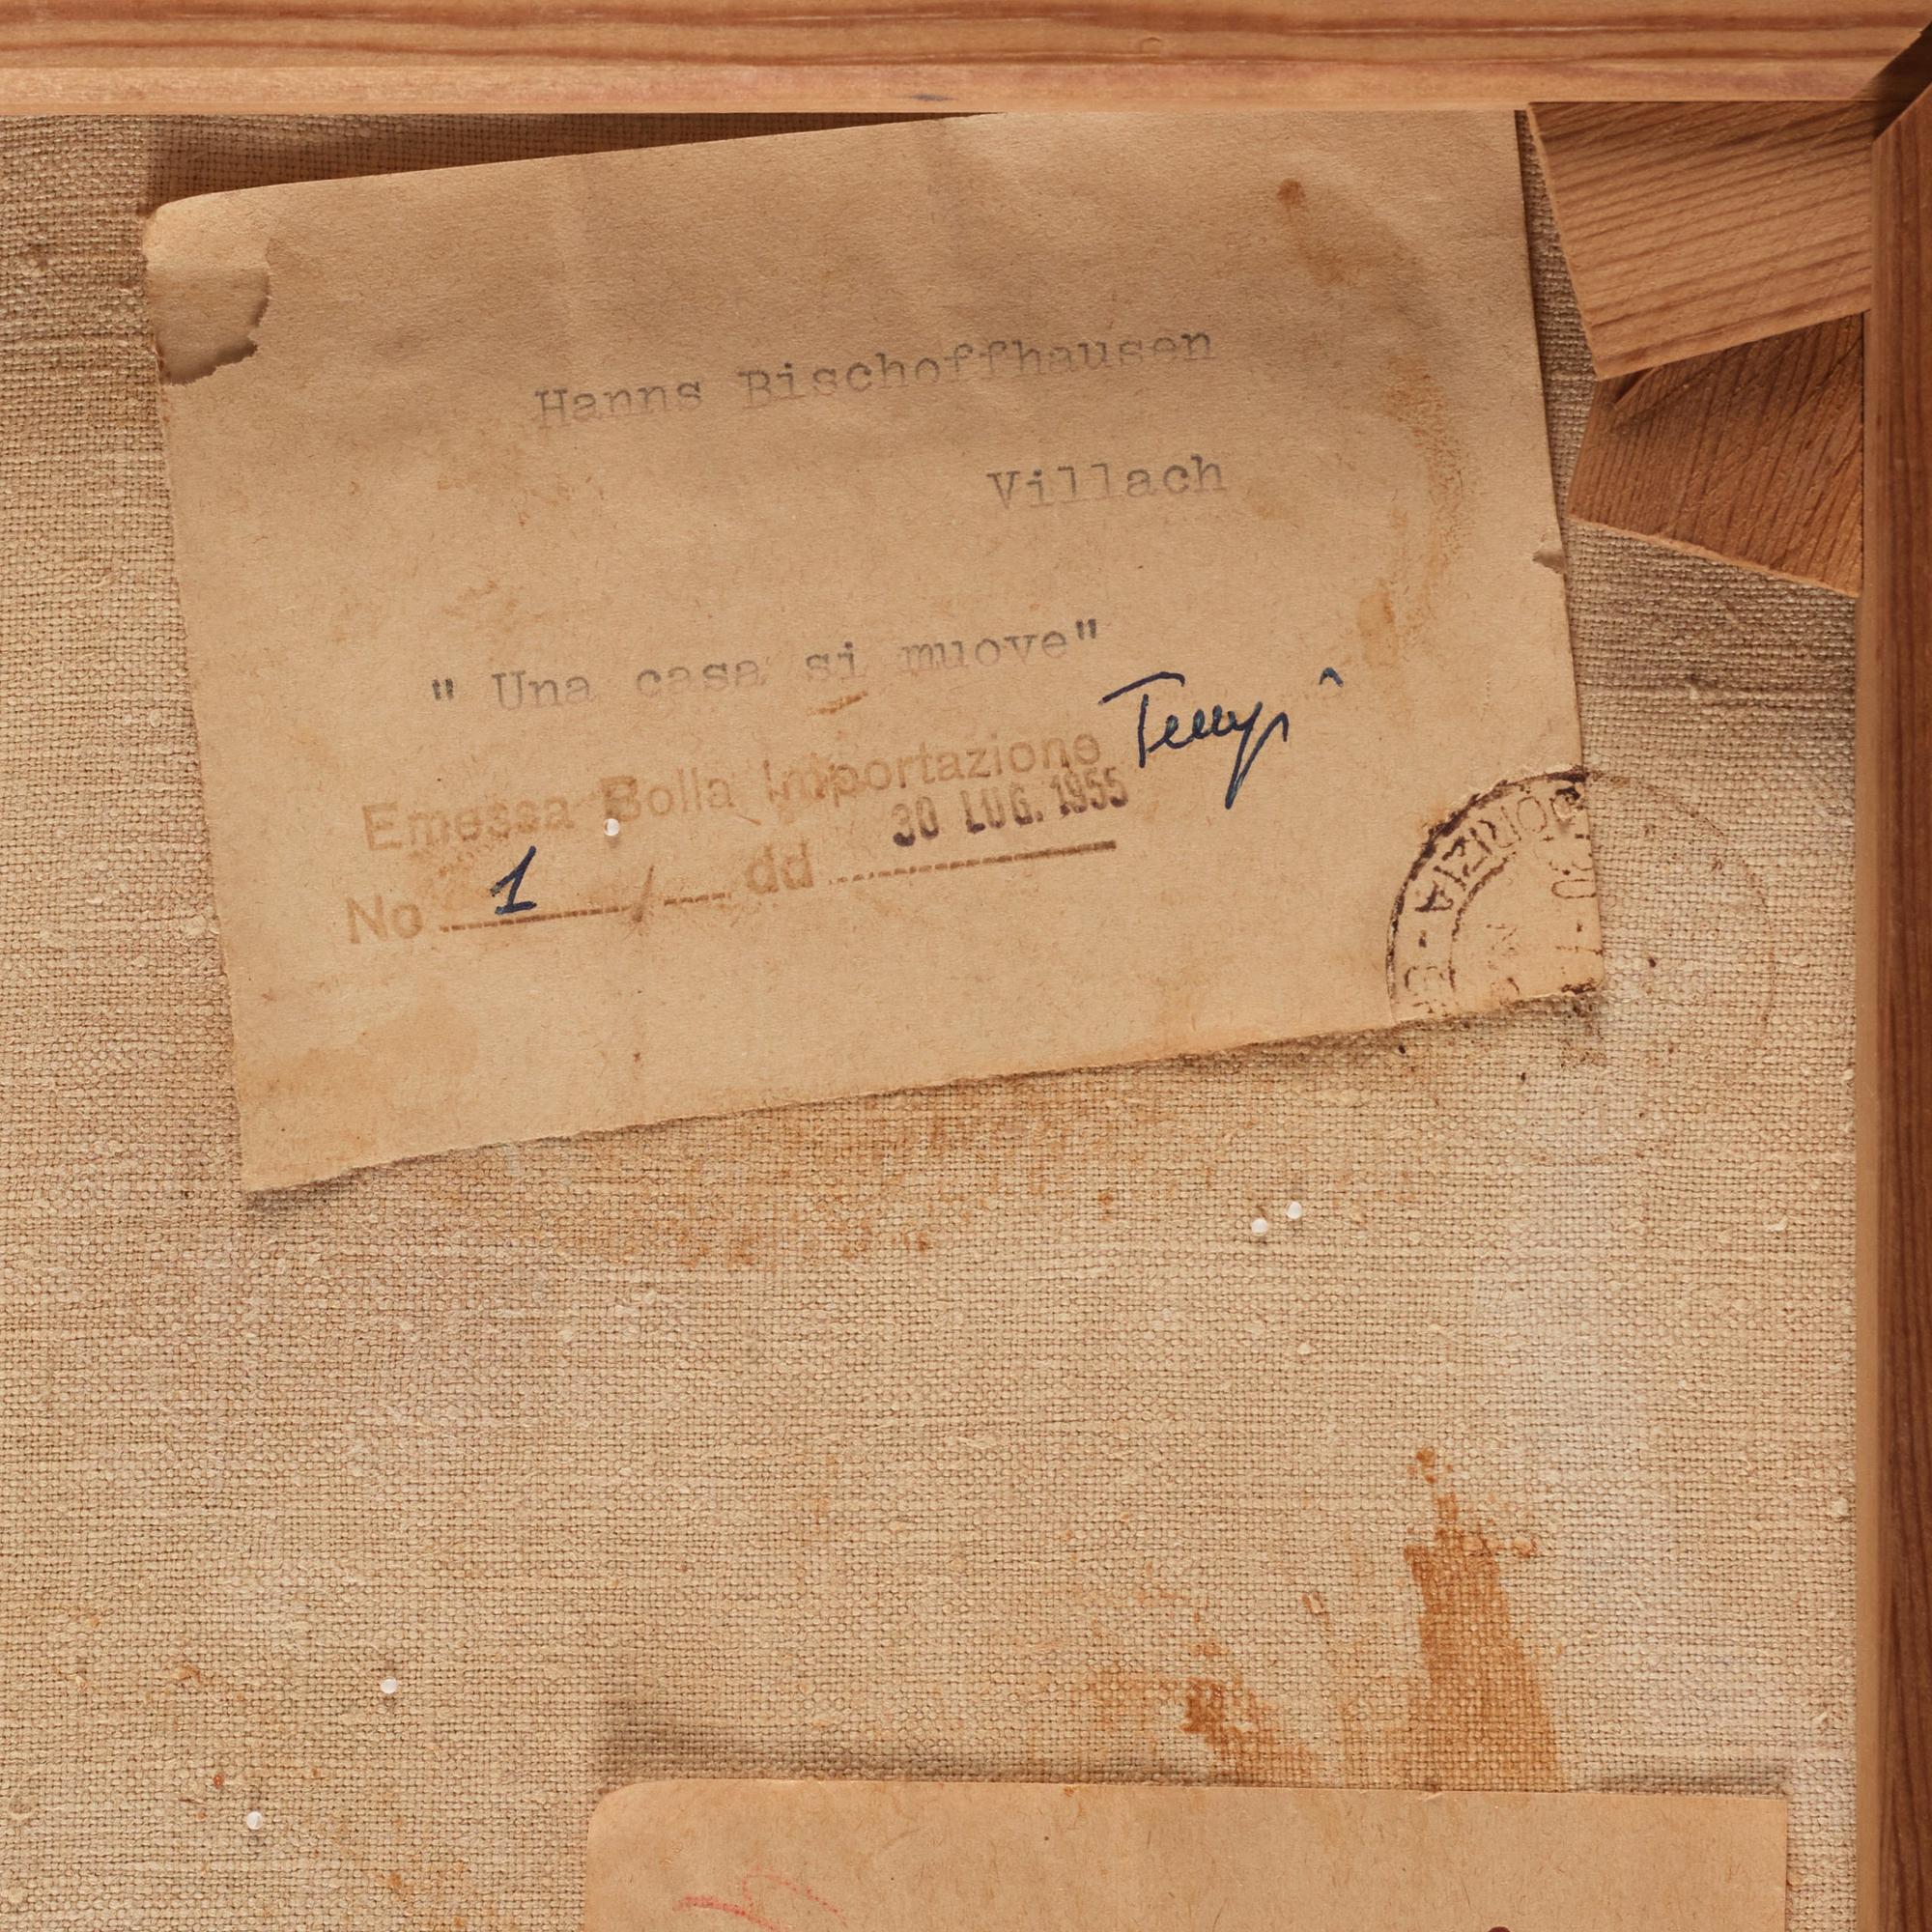 Hanns Bischoffhausen
Villach
" Una casa si muove"
Emessa Bolla Importazione
30 LUG. 1955
No 1 / dd
GORIZIA -